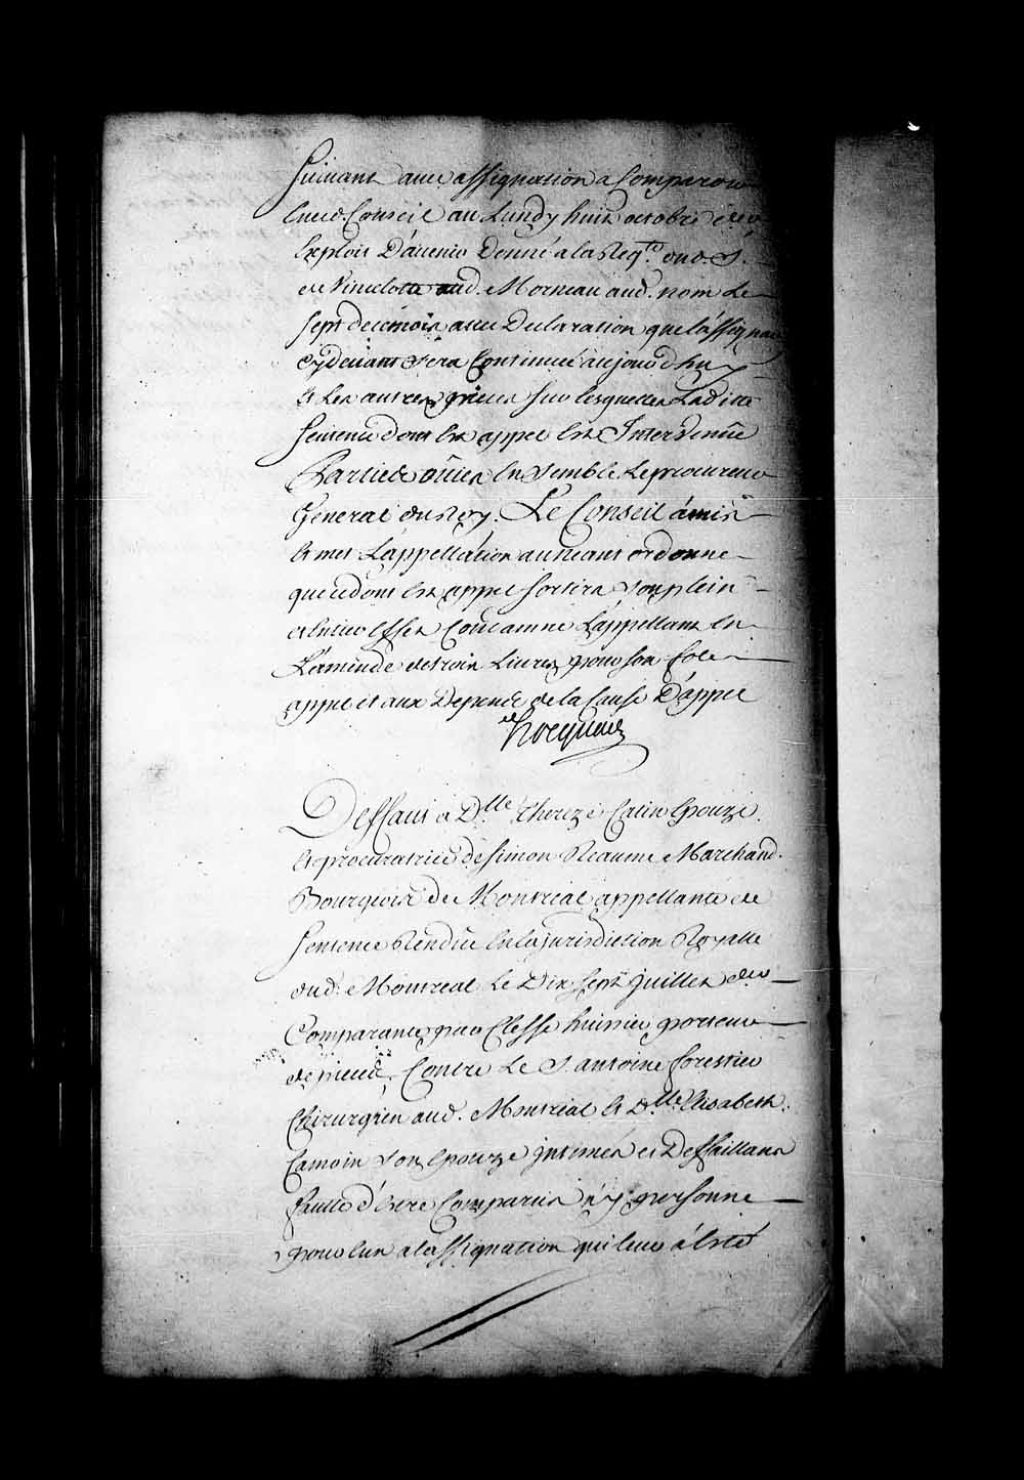 Suivant avec assignation a Comparoir
En ce d. Conseil au Lundy huit octobre
Exploit D'avenir Donné a la Reqte. dud. S.
de Vincelotte aud. Morneau aud. nom Le
Sept de ce mois avec Declaration que l'assignaon
cy devant sera Continuée aujourd'huy
Et Les autres pieces sur lesquelles Ladite
Sentence dont Est appel Est Intervenüe
Parties oüies Ensemble Le procureur
General du Roy. Le Conseil à mis
Et met L'appellation au neant ordonne
que ce dont Est appel Sortira son plein
et entier Effet Condamne L'appellant En
L'amende de trois Livres pour son fol
appel et aux Depens de la Cause D'appel
Hocquart
Deffaut à Dlle Thereze Catin Epouze
Et procuratrice de Simon Reaume Marchand
Bourgeois de Montreal appellante de
Sentence Rendüe En la jurisdiction Royalle
dud. Montreal Le Dix Sept juillet der
Comparante par Clesse huissier porteur
de pieces. Contre Le S. antoine forestier
Chirurgien aud. Montreal Et Dlle. Elisabeth
Camoin son Epouze intimés et Deffaillans
faute d'Estre Comparus ny personne
pour Eux a l'assignation qui leur à Esté